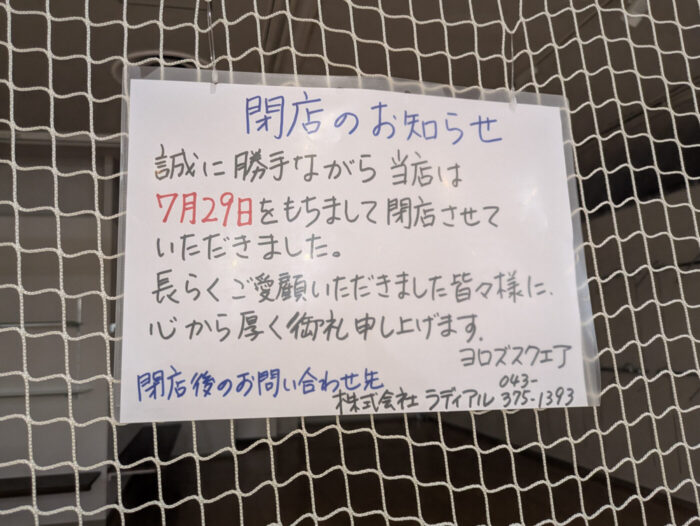 閉店のお知らせ
誠に勝手ながら 当店は
7月29日をもちまして閉店させて
いただきました。
長らくご愛顧いただきました皆々様に、
心から厚く御礼申し上げます。
ヨロズスクエア
閉店後のお問い合わせ先
株式会社 ラディアル 043-
375-1393